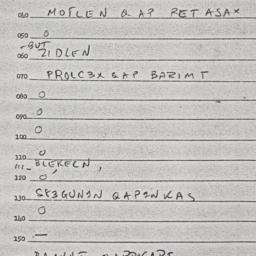 040 MOTLEN Q AP RET ASAX
050 O
-BUT
060 ZIDLEN
070 PROLC3X QAP BARIMT
080 O
090 O
O
100
110 O
111- BLEKELN,
120 O
130 S83GUNIN QAPINKAS
O
140
150 —